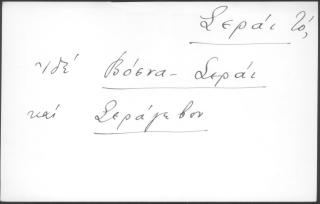 Σεράι τό,
ἰδέ Βόσνα-Σεράι
καί Σεράγεβον